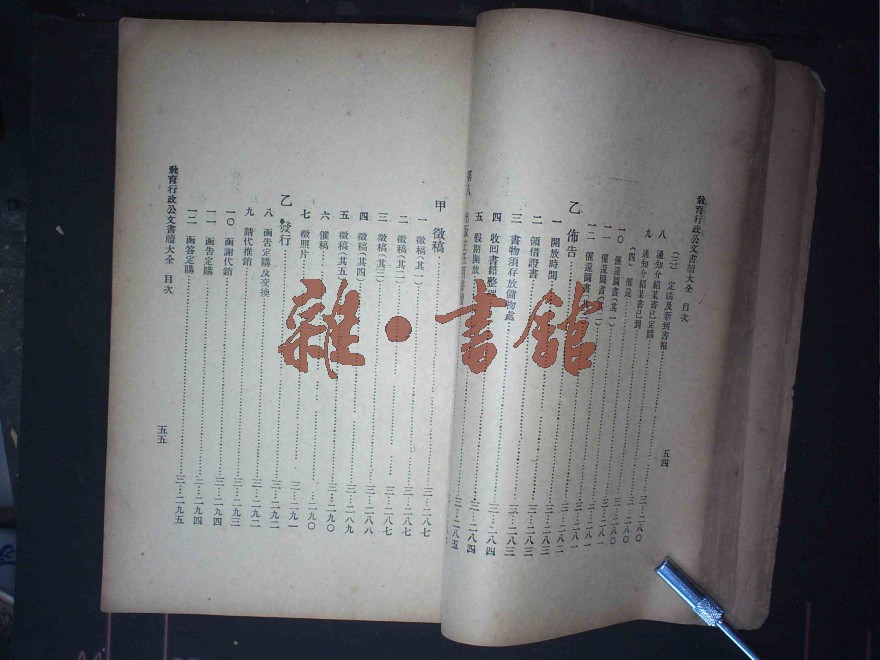 教育行政公文書牘大全　目次
五四
(三)　定購及新到書報
八　通知介紹某書已定購…三·二八〇
九　通知介紹某書已到…三·二八〇
(四)　催還
一〇　催還圖書(其一)…三·二八〇
一一　催還圖書(其二)…三·二八一
一二　催還圖書
乙　佈告…三·二八一
一　開放時間…三·二八二
二　領借證書…三·二八三
三　書物須存放儲物處…三·二八三
四　收回書籍整理…三·二八四
五　假期開放…三·二八四
三·二八五
甲　徵稿…三·二八七
一　徵稿(其一)…三·二八七
二　徵稿(其二)…三·二八七
三　徵稿(其三)…三·二八七
四　徵稿(其四)…三·二八八
五　徵稿(其五)…三·二八九
六　催稿…三·二九〇
七　徵照片…二九〇
乙　發行…三·二九一
八　函告定購及交換…三·二九二
九　請代推銷…三·二九二
一〇　函謝代銷…三·二九三
一一　函告定購…三·二九四
一二　函答定購…三·二九五
教育行政公文書牘大全　目次
五五
雜·書館